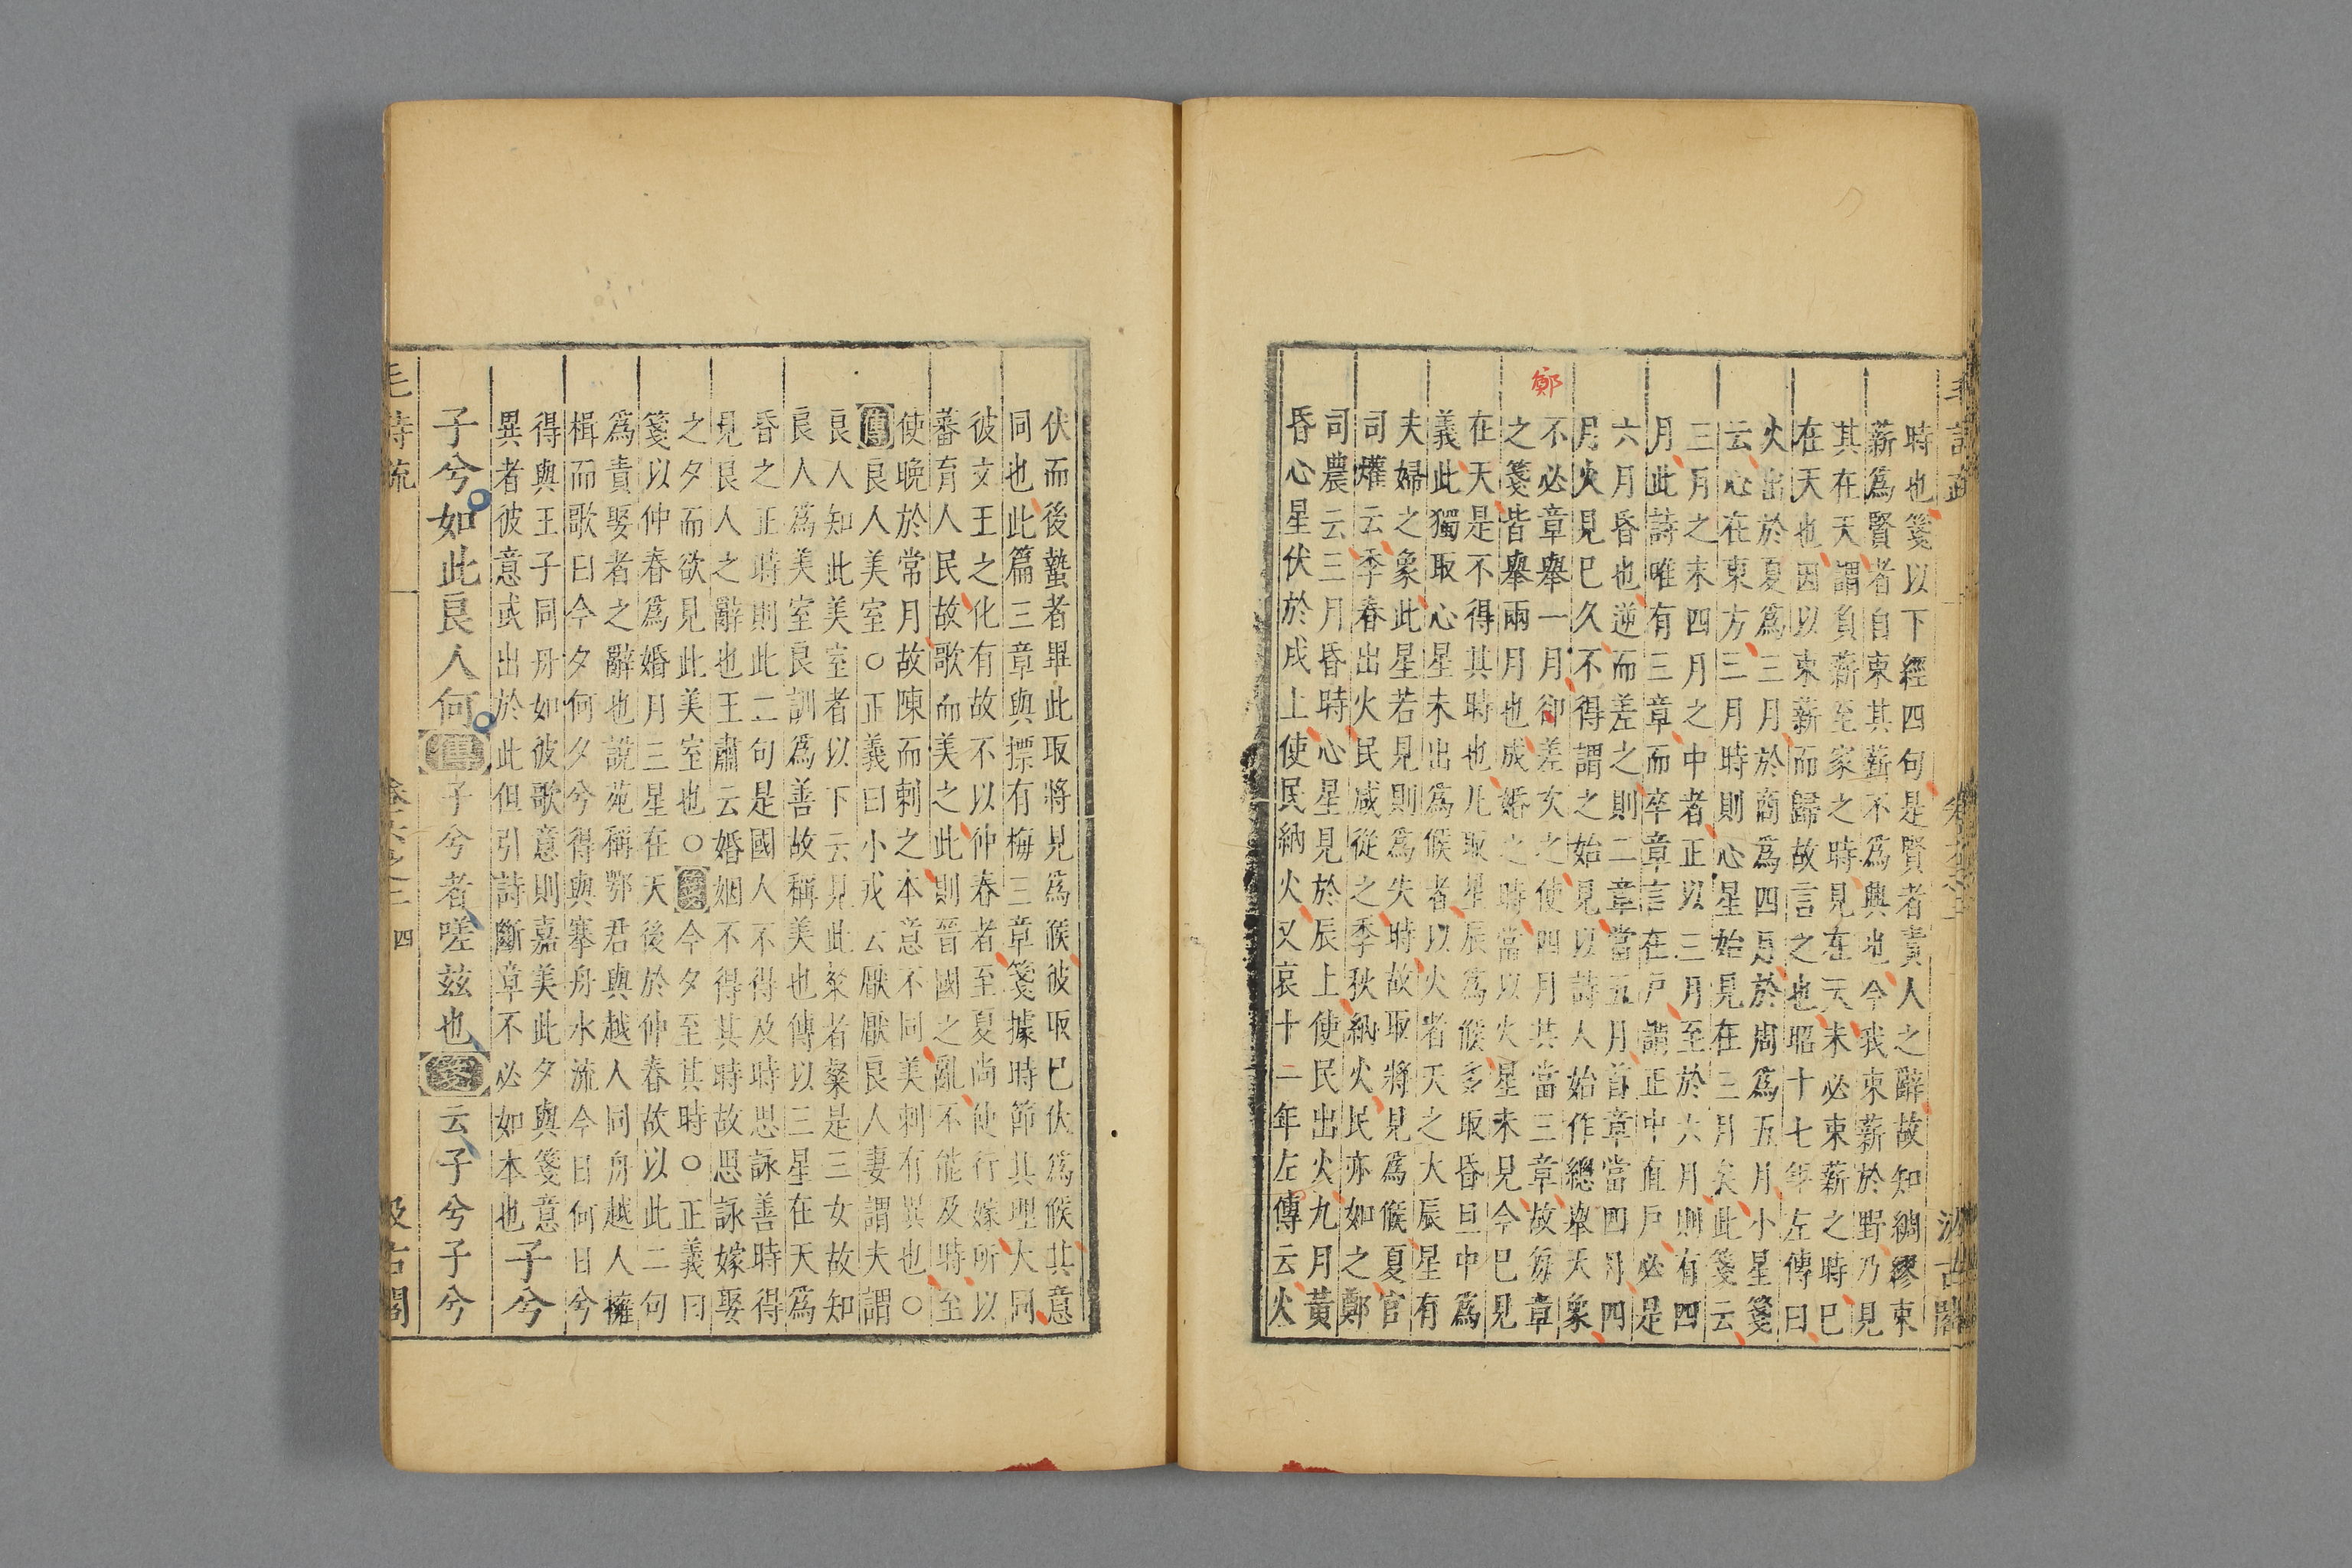 毛詩疏
卷六之三
汲古閣
時也箋以下經四句是賢者責人之辭故知綢繆束
薪爲賢者自束其薪不爲興也今我束薪於野乃見
其在天謂負薪至家之時見在天未必束薪之時巳
在天也因以束薪而歸故言之也昭十七年左傳曰
火出於夏爲三月於商爲四月於周爲五月小星箋
云心在東方三月時則心星始見在三月矣此箋云
三月之末四月之中者正以三月至於六月則有四
月此詩唯有三章而卒章言在戸謂正中直戸必是
六月昏也逆而差之則二章當五月首章當四月四
月火見巳久不得謂之始見以詩人始作總舉天象
鄭
不必章舉一月卻差次之使四月共當三章故每章
之箋皆舉兩月也成婚之時當以火星未見今巳見
在天是不得其時也凡取星辰爲候多取昏旦中爲
義此獨取心星未出爲候者以火者天之大辰星有
夫婦之象此星若見則爲失時故取將見爲候夏官
司爟云季春出火民咸從之季秋納火民亦如之鄭
司農云三月昏時心星見於辰上使民出火九月黃
昏心星伏於戌上使民納火又哀十二年左傳云火
伏而後蟄者畢此取將見爲候彼取巳伏爲候其意
同也此篇三章與摽有梅三章箋據時節其理大同
彼文王之化有故不以仲春者至夏尚使行嫁所以
蕃育人民故歌而美之此則晉國之亂不能及時至
使晚於常月故陳而刺之本意不同美刺有異也○
傳良人美室○正義曰小戎云厭厭良人妻謂夫謂
良人知此美室者以下云見此粲者粲是三女故知
良人爲美室良訓爲善故稱美也傳以三星在天爲
昏之正時則此二句是國人不得及時思詠善時得
見良人之辭也王肅云婚姻不得其時故思詠嫁娶
之夕而欲見此美室也○箋今夕至其時○正義曰
箋以仲春爲婚月三星在天後於仲春故以此二句
爲責娶者之辭也說苑稱鄂君與越人同舟越人擁
楫而歌曰今夕何夕兮得與搴舟水流今日何日兮
得與王子同舟如彼歌意則嘉美此夕與箋意
異者彼意或出於此但引詩斷章不必如本也
子兮
子兮如此良人何傳子兮者嗟茲也箋云子兮子兮
毛詩疏
卷六之三
四
汲古閣